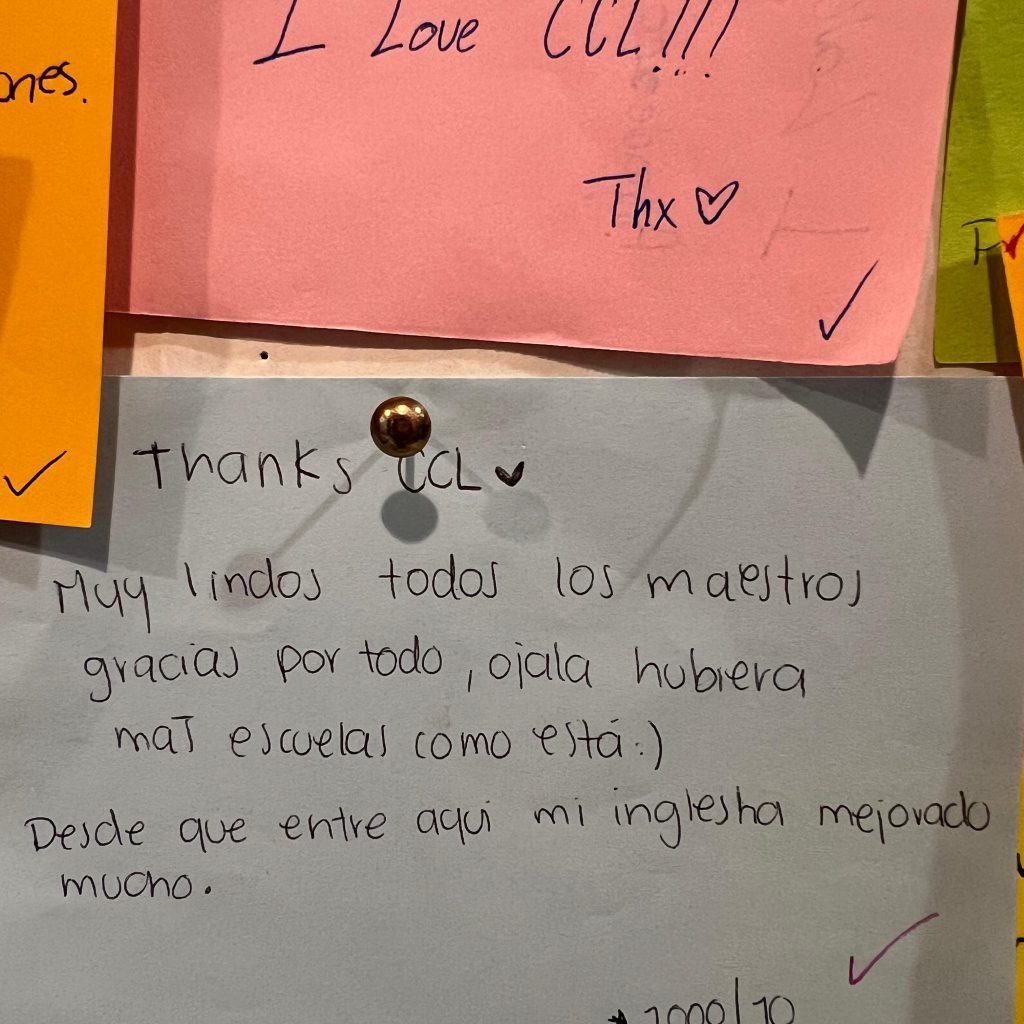 ones.
I Love CCL!!!
Thx ♡
Thanks CCL ♥
Muy lindos todos los maestros
gracias por todo, ojala hubiera
mas escuelas como está :)
Desde que entre aqui mi ingles ha mejorado
mucho.
1000/10